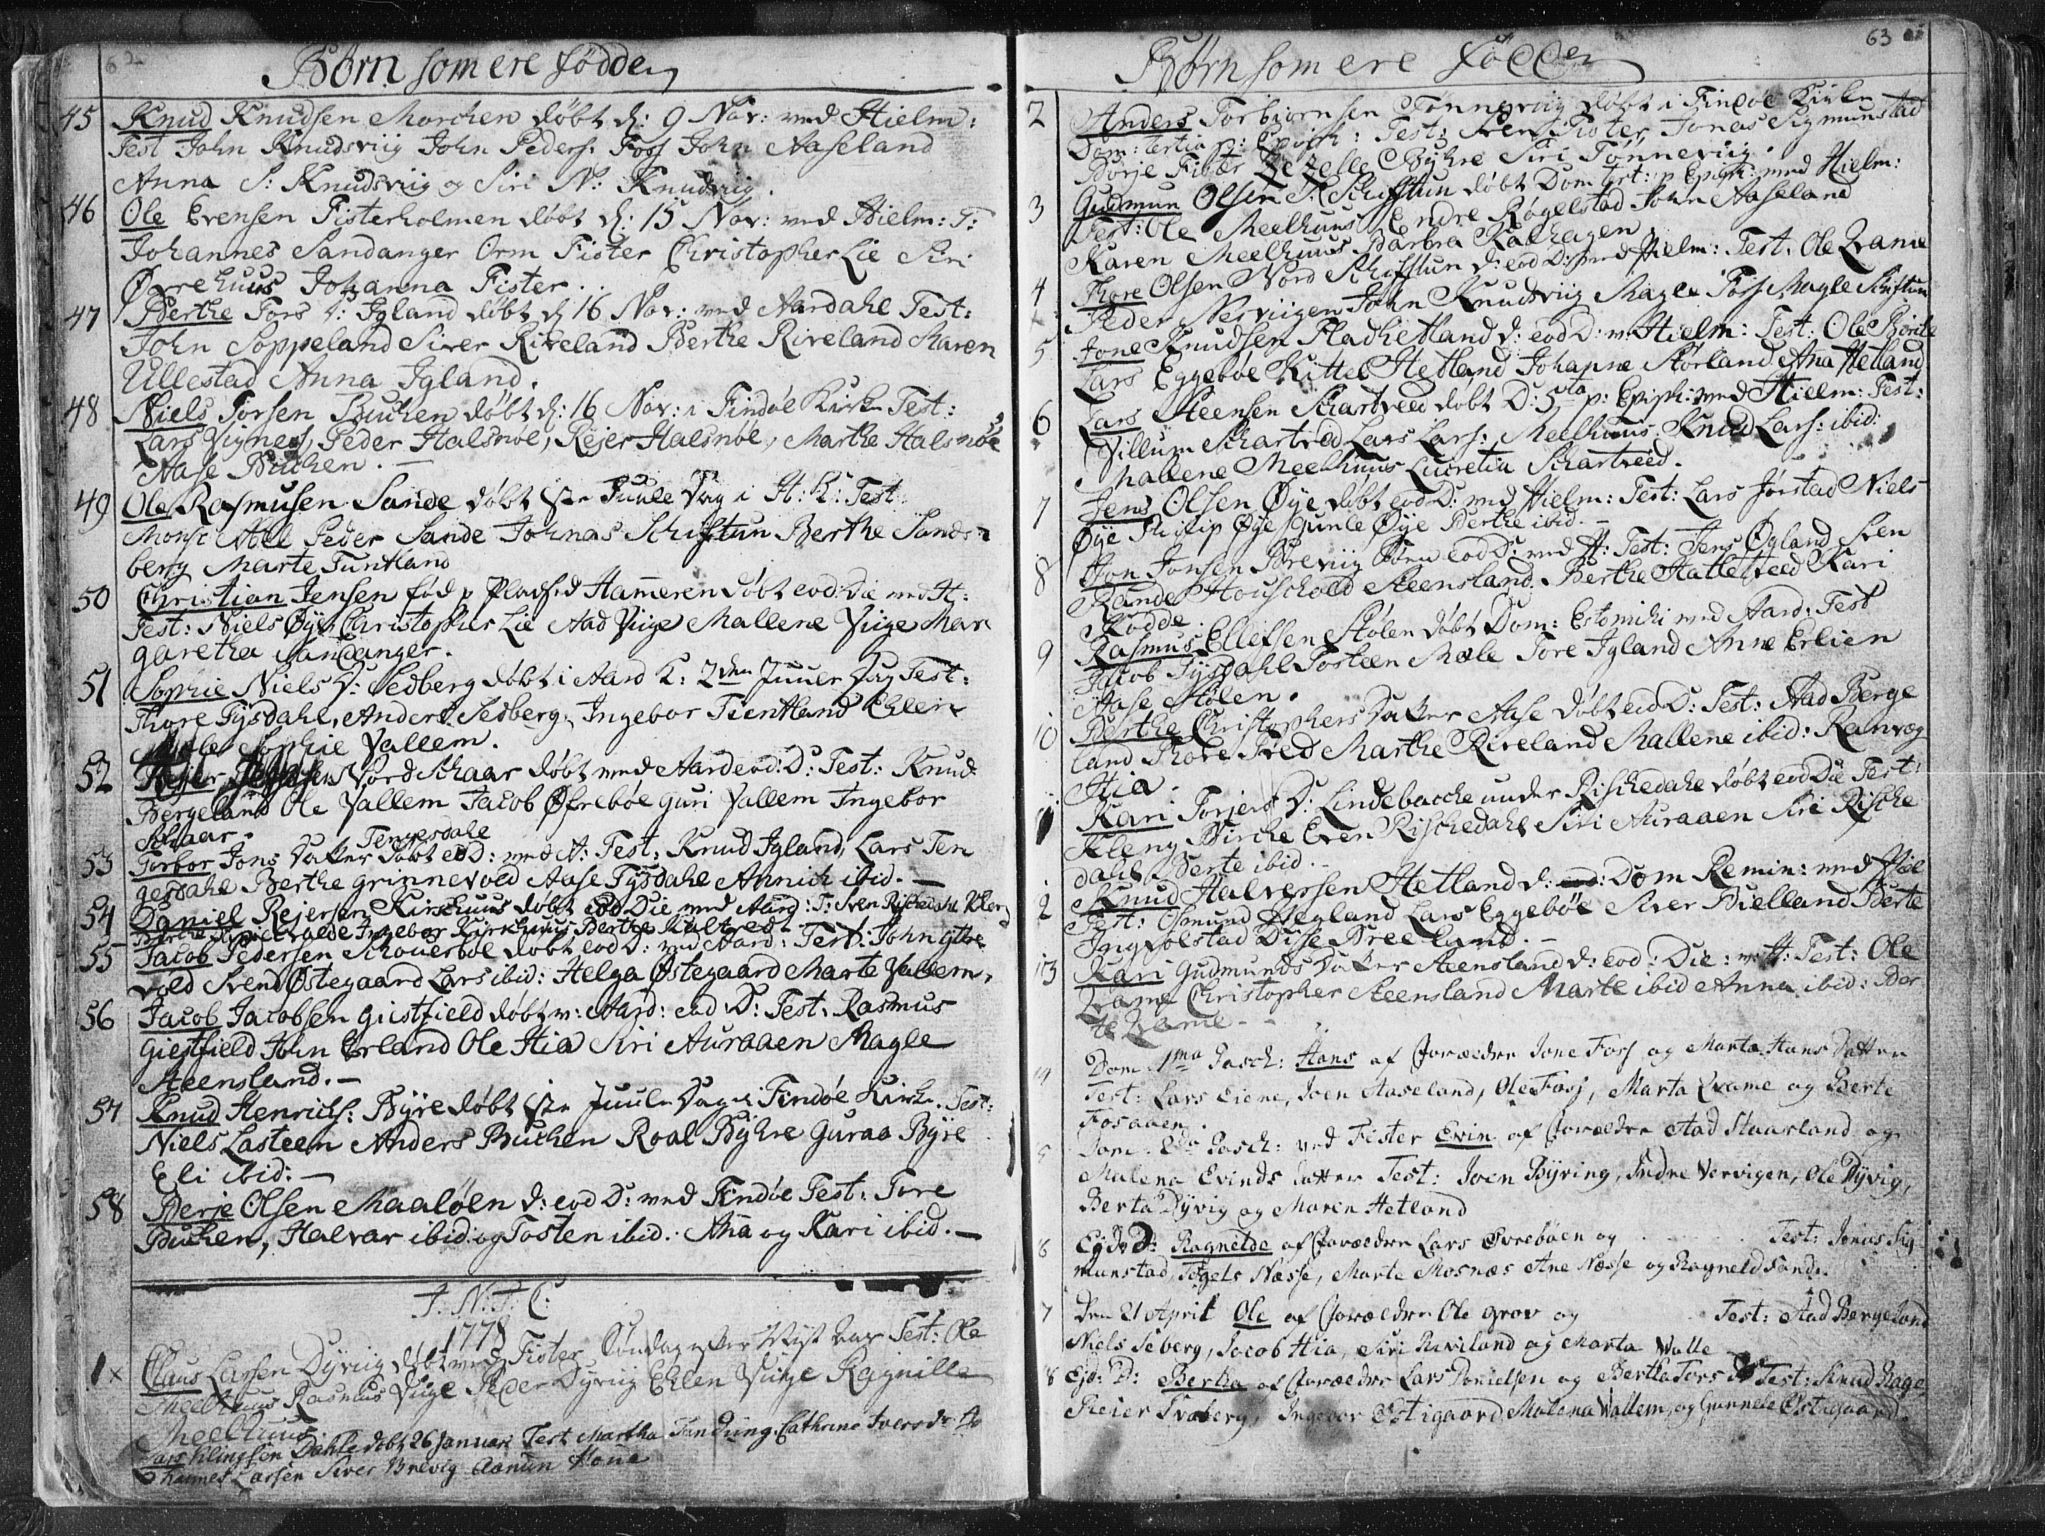 62
Børn som ere fødde
45 Knud Knudsen Marchen døbt d: 9 Nov: med Hielm:
Test John Knudsviig John Peders: Foss John Aaseland
Anna S: Knudsviig og Siri N: Knudsviig.
46 Ole Evensen Fisterholmen døbt d: 15 Nov: med Hielm: T:
Johannes Sandanger Orm Fister Christopher Lie Siri
Øvrehuus Johanna Fister.
47 Berthe Tors D: Igland døbt d 16 Nov: med Aardahl Test:
John Soppeland Siver Riveland Berthe Riveland Maren
Ullestad Anna Igland.
48 Niels Torsen Buchen døbt d: 16 Nov: i Findøe Kirke Test:
Lars Vignes, Peder Halsnøe, Rejer Halsnøe, Marthe Halsnøe
Aase Buchen. —
49 Ole Rasmusen Sande døbt 1ste Juule Dag i H: K: Test
Mons Peder Sande Johnas Schiftun Berthe Sand=
berg Marte Tuntland
50 Christian Jensen fød p Pladsed Hameren døbt eod: Die med H:
Test: Niels Øye Christopher Lie Aad Viige Mallene Viige Mar
garetha Sandanger.
51 Sophie Niels D: Sedberg døbt i Aard K: 2den Juule Dag Test:
Thore Tysdahl, Anders Sedberg, Ingebor Tuntland Ellen
Sophie Vallem.
52 Rejer Nord Schaar døbt med Aard eod: D: Test: Knud
Bergeland Ole Vallem Jacob Øfrebøe Guri Vallem Ingebor
Schaar.
53 Torbor Jons Datter Tengesdahl døbt eod D: med A: Test: Knud Igland Lars Ten
gesdahl Berthe Grinnevold Aase Tysdahl Annich ibid. —
54 Daniel Rejersen Kirchuus døbt eod Die med Aard: T: Sven Rischedahl
Ingebor Kirchuus Berthe
55 Jacob Pedersen Schouerbøe døbt eod D: med Aard: Test: John Gitte
vold Svend Østegaard Lars ibid: Helga Østegaard Marte Vallem.
56 Jacob Jacobsen Giestfield døbt m: Aard: eod D: Test: Rasmus
Giestfield John Erland Ole Hia Siri Auraaen Magle
Steensland. —
57 Knud Henrichs: Byre døbt 1ste Juule Dag i Findøe Kirke. Test:
Niels Lasteen Anders Buchen Roal Byhre Guraa Byre
Eli ibid: —
58 Berje Olsen Maaløen d: eod D: med Findøe Test: Tore
Buchen, Halvar ibid: og Tosten ibid. Aña og Kari ibid. —
J. N. J. C:
1778
1 × Claus Larsen Dyrviig døbt med Fister Søndag efter Nyt Aar Test: Ole
Meelhuus Rasmus Viige Peder Dyrviig Ellen Viige Ragnille
Meelhuus.
Lars Dahle døbt 26 Januari Test Martha Tandung. Cathrine
Larsen Siver Brevig
63
Børn som ere fødder
2 Anders Torbiørnsen Tønneviig døbt i Findøe Kirke
Dom: tertia p: Epiph: Test: Sven Fister Jonas Sigmunstad
Børje Byhre Siri Tønneviig.
3 Gudmun Olsen S: Schiftun døbt Dom tert: p Epiph: med Hielm:
Test: Ole Meelhuus Endre Røgelstad John Aaseland
Karen Meelhuus Barbra Kalhagen
4 Thore Olsen Nord Schiftun d: eod D: med Hielm: Test: Ole Qvame
Peder Nerviigen John Knudsviig Magle Foss Magle Schiftun
5 Jone Knudsen Pladhetland d: eod D: m: Hielm: Test: Ole
Lars Eggebøe Kittel Hetland Johanne Størland Ana Hetland
6 Lars Steensen Schartveed døbt D: 5ta p: Epiph: med Hielm: Test:
Villum Schartved Lars Lars: Meelhuus Knud Lars: ibid:
Mallene Meelhuus Lucretia Schartveed.
7 Jens Olsen Øye døbt eod D: med Hielm: Test: Lars Jørstad Niels
Øye Philip Øye Gunle Øye Berthe ibid. —
8 Jon Jonsen Breviig eod D: med H: Test: Jens Øgland Sven
Rande Houschold Steensland. Berthe Hattetveed Kari
Rodde.
9 Rasmus Ellefsen Stølen døbt Dom: Estomihi med Aard: Test
Jacob Tysdahl Tosteen Mæle Tore Igland Anne Erlien
Aase Stølen.
10 Berthe Christophers Datter Aase døbt eod D: Test: Aad Berge
land Thore Marthe Riveland Mallene ibid: Ranveg
Hia.
1 Kari Torjers D: Lindebacche under Rischedahl døbt eod Die Test:
Birche Even Rischedahl Siri Auraaen Siri Rische
dahl Berte ibid. —
2 Knud Halversen Hetland d: Dom Remin: med Hiel
Test: Osmund Hegland Lars Eggebøe Siver Bielland Berte
Ingvolstad Disse Breeland. —
13 Kari Gudmunds Datter Steensland d: eod: Die: m: H: Test: Ole
Qvame Christopher Steensland Marte ibid Anna ibid: Ber
te Qvame. —
14 Dom 1ma Pasch: Hans af Forældre Jone Foss og Marta Hans Datter
Test: Lars Eiene, Joen Aaseland, Ole Foss, Marta Qvame og Berte
Fosaaen.
5 Dom: 2da Pasch: ved Fister Evin af Forældre Aad Staarland og
Malena Evinds Datter Test: Joen Byring, Indre Nervigen, Ole Dyvig,
Berta Dyvig og Maren Hetland
6 Ejd. D: Ragnelde af Forældre Lars Øvrebøen og Test: Jonas Sig
munstad, Tøgels Næsse, Marte Mosnæs Ane Næsse og Ragneld Sande.
7 Den 21 April Ole af Forældre Ole Grov og Test: Aad Bergeland
Niels Seberg, Jacob Hia, Siri Riviland og Marta Walle
8 Ejd: D: Bertha af Forældre Lars Danielsen og Bertha Tors D: Test: Knud Hage,
Reier Svaberg, Ingebor Østigaard, Malena Wallem, og Gunnele Østigaard.